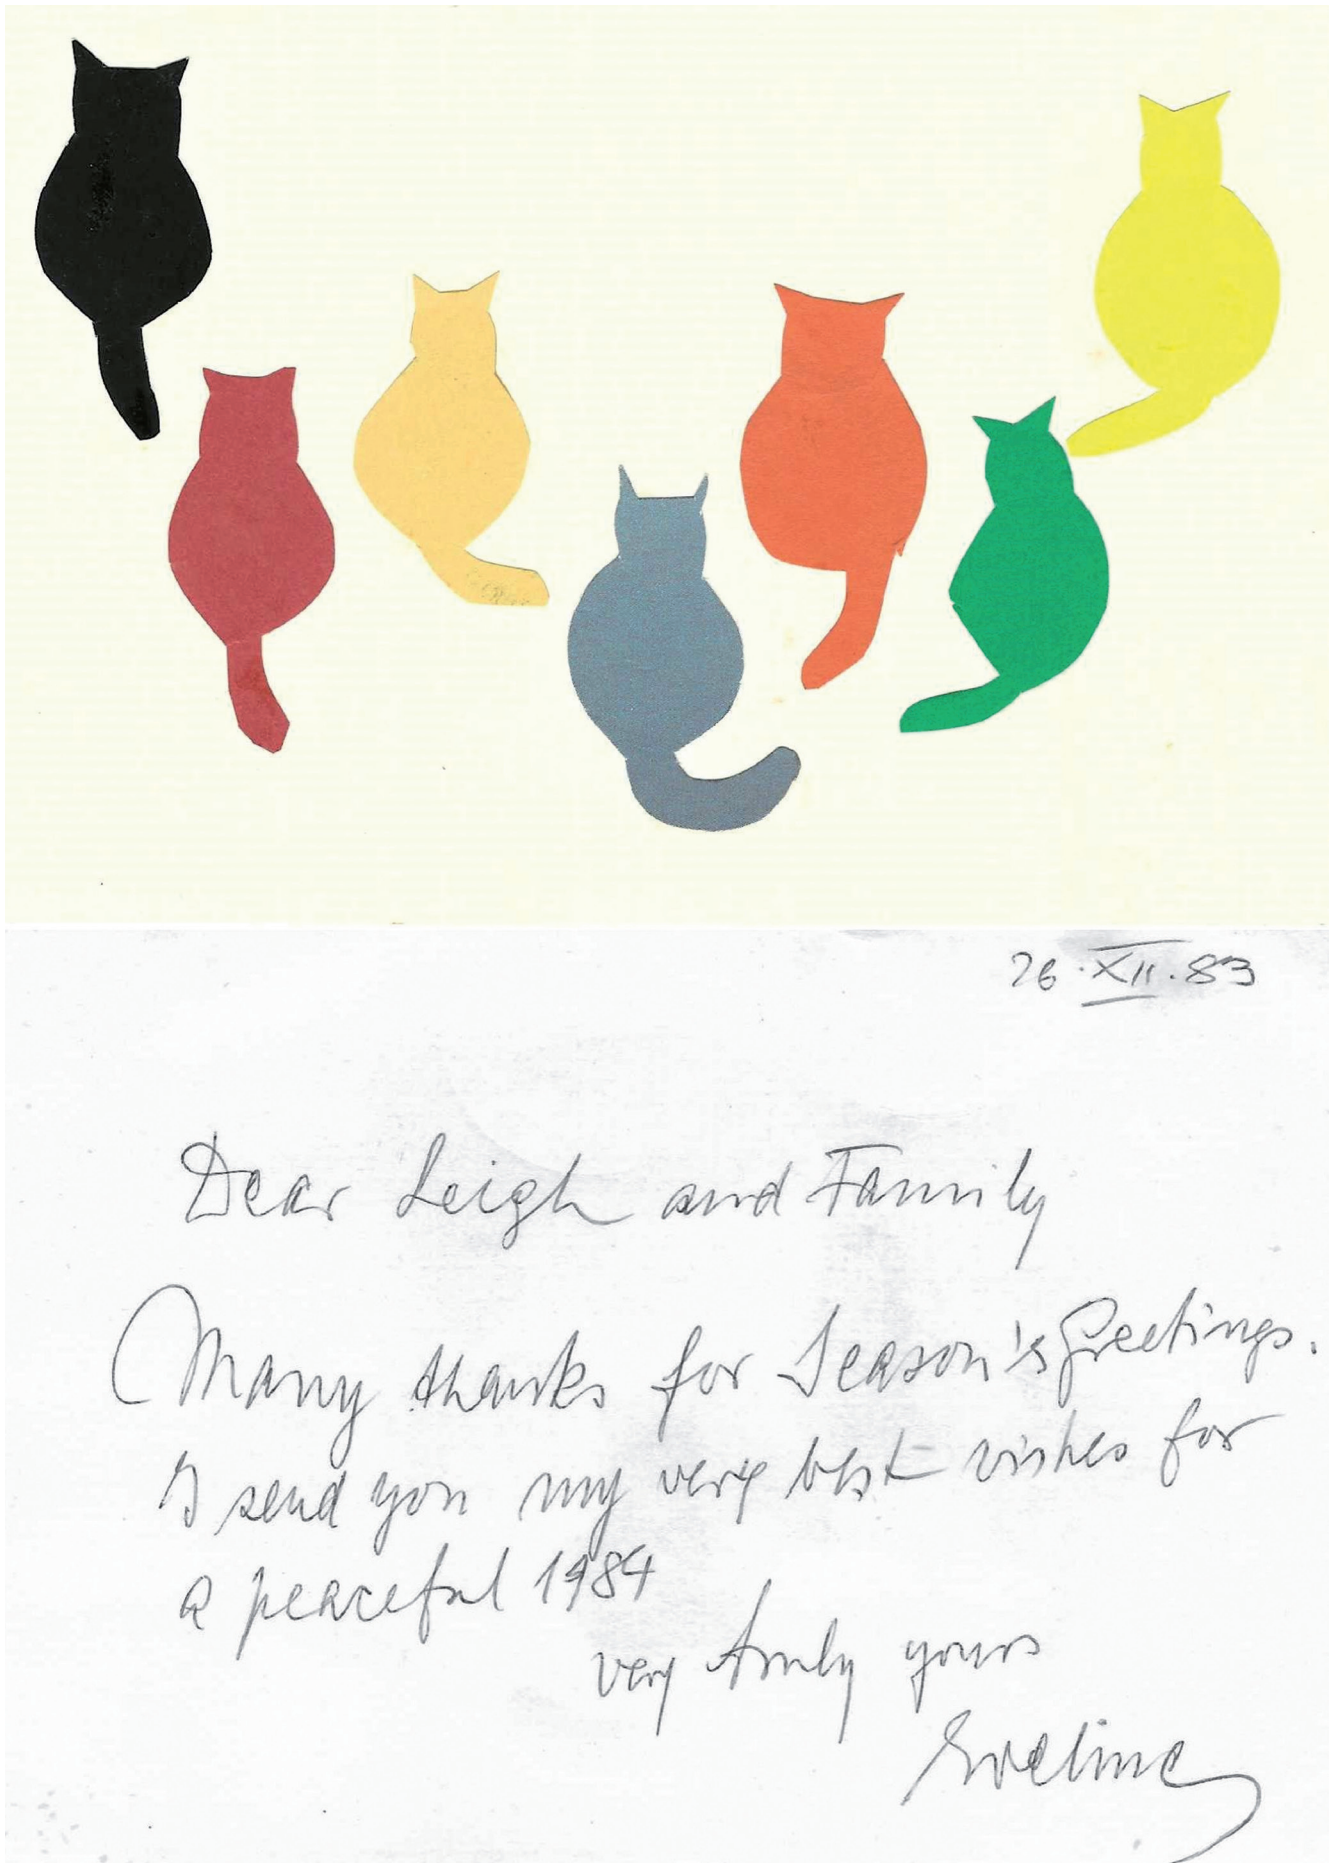 26.XII.83
Dear Leigh and Family
Many thanks for Season's Greetings.
I send you my very best wishes for
a peaceful 1984
very truly yours
Eveline